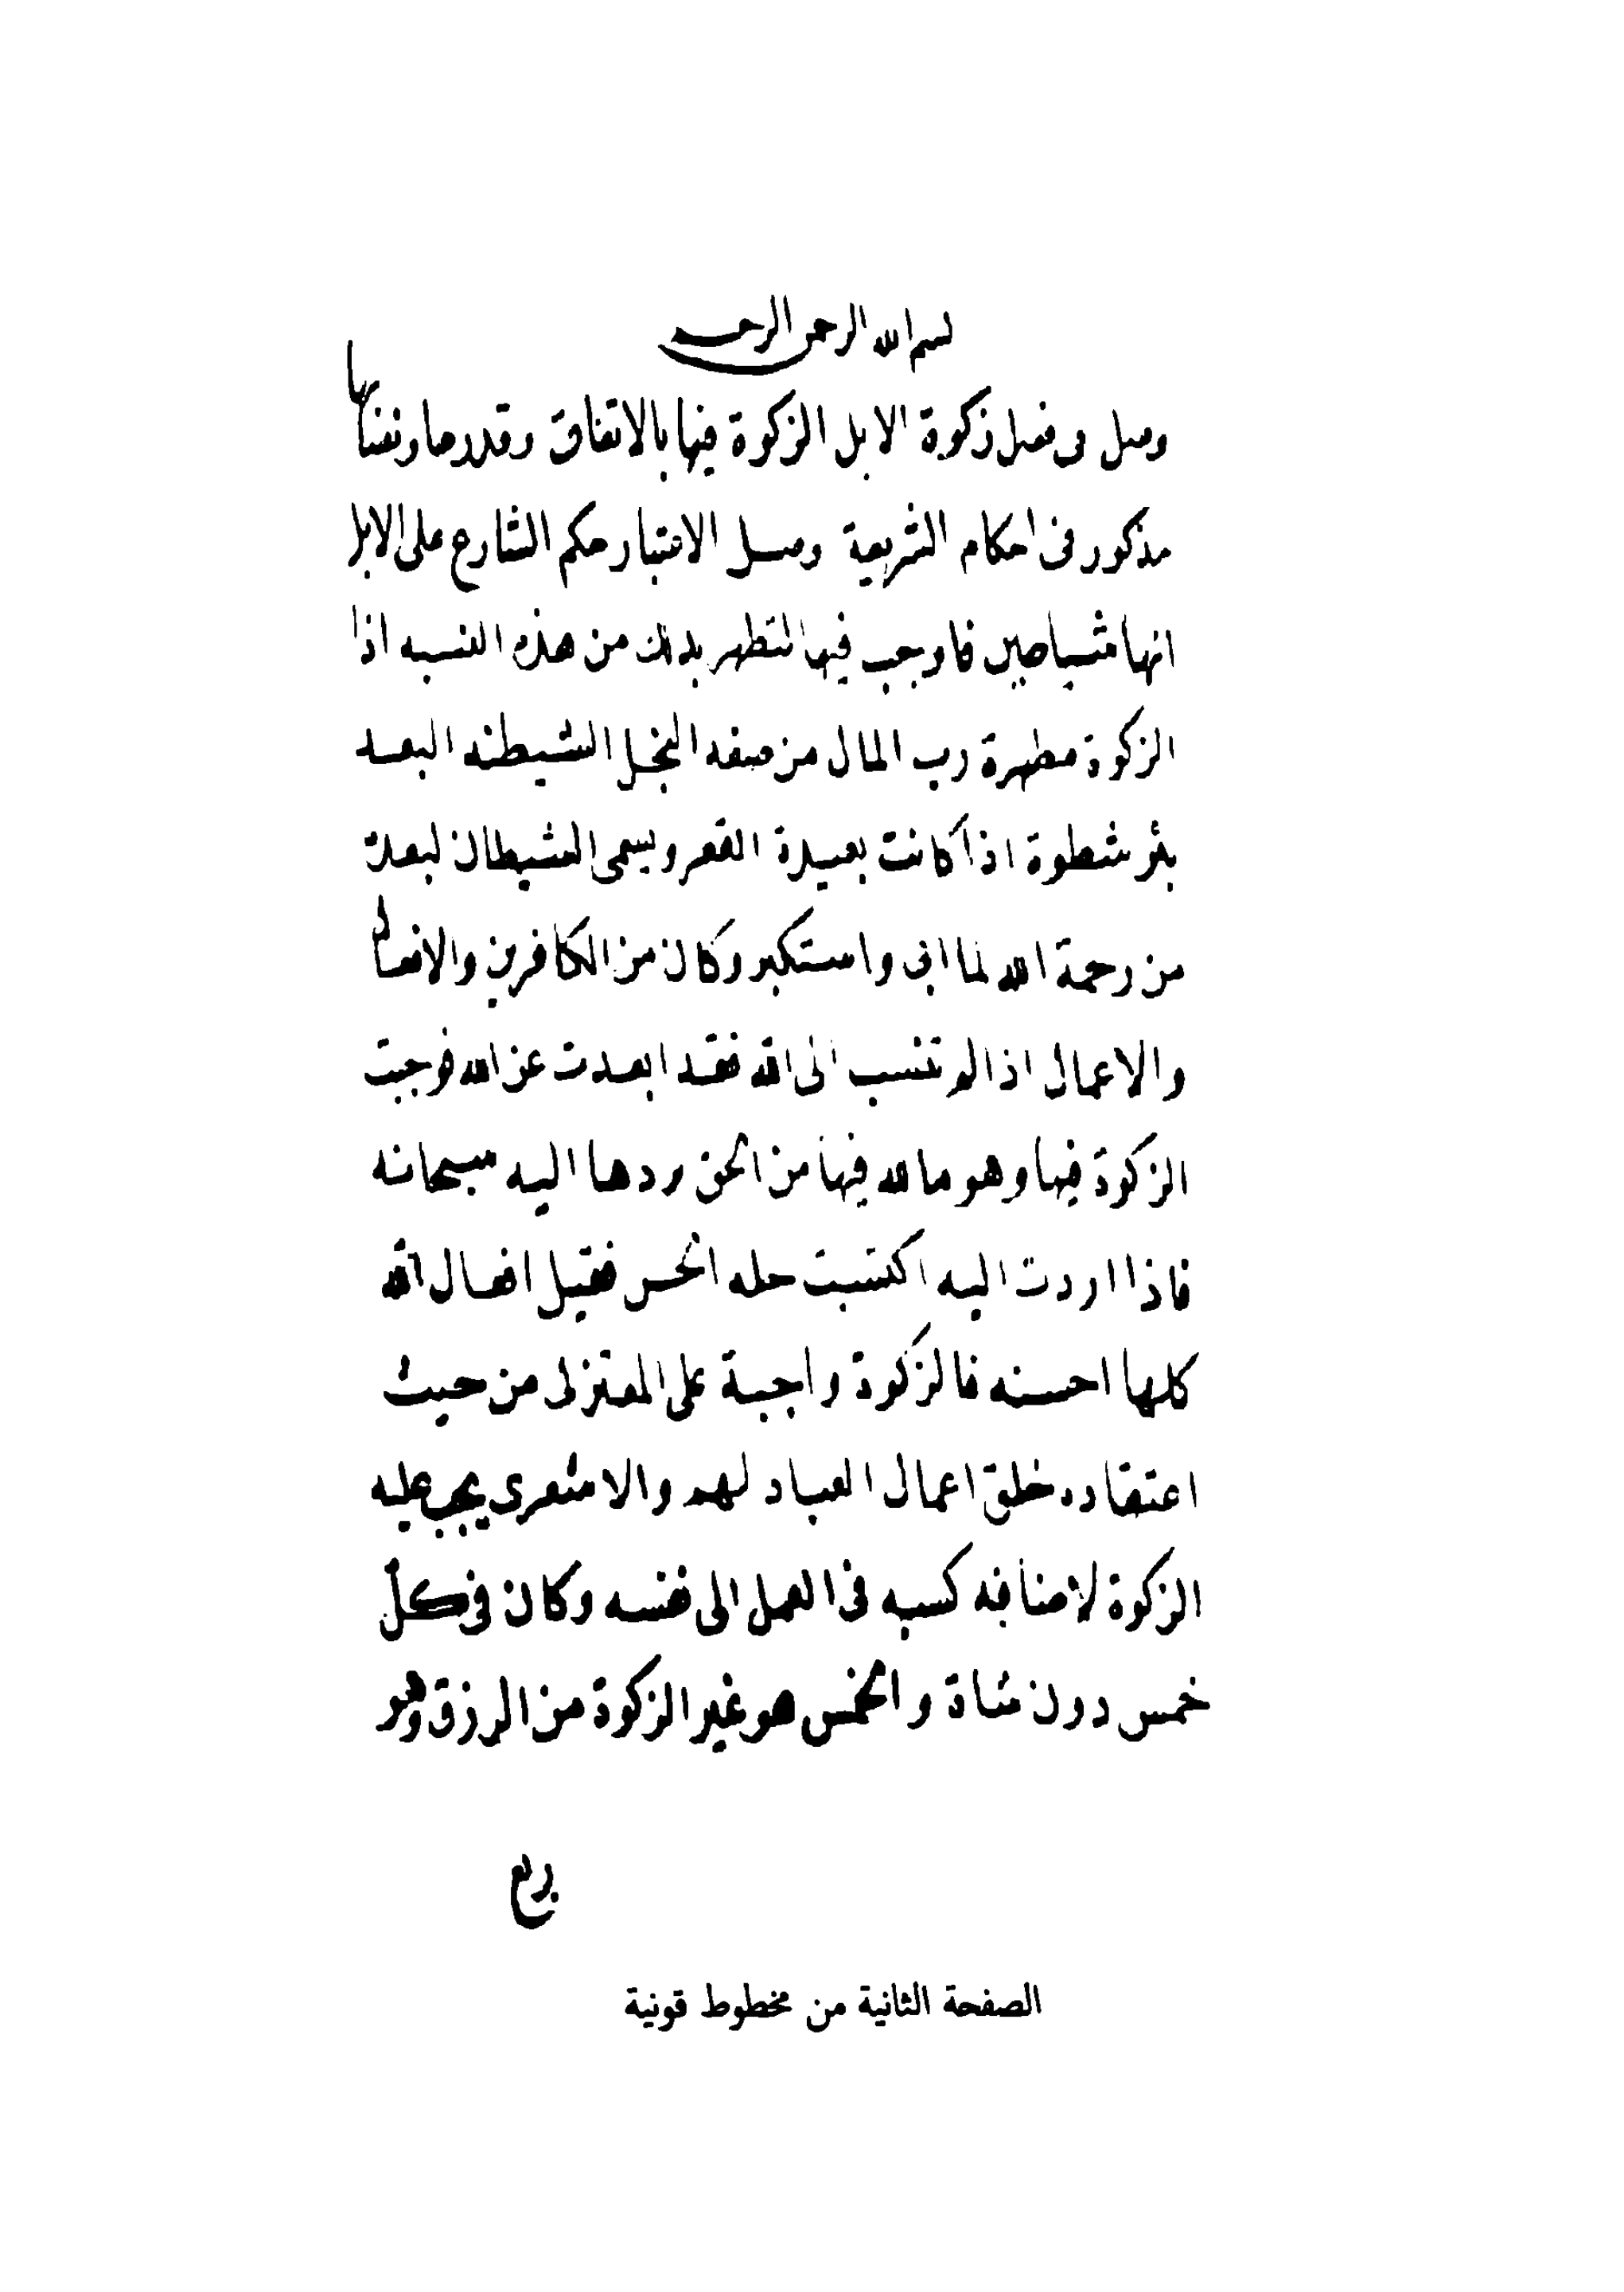 بسم الله الرحمن الرحيم
وصل في فصل زكوة الابل الزكوة فيها بالاتفاق وقدرها ونصابها
مذكور في احكام الشريعة وصل الاعتبار حكم الشارع على الابل
انها شياطين فاوجب فيها لتطهر بذلك من هذه النسبه اذا
الزكوة مطهرة رب المال من صفه البخل الشيطنه البعد
بئر شطونة اذا كانت بعيدة القعر ويسمى الشيطان لبعده
من رحمة الله لما ابى واستكبر وكان من الكافرين والافعال
والاعمال اذا لم تنسب الى الله فقد ابعدت عن الله فوجبت
الزكوة فيها وهو ما لله فيها من الحق بردها اليه سبحانه
فاذا اردت اليه اكتسبت حله الحسن فقيل افعال الله
كلها احسنه فالزكوة واجبة على المعتزلى من حيث
اعتقاده خلق اعمال العباد لهم والاشعرى يجب عليه
الزكوة لاضافه كسبه في العمل الى نفسه وكان في كل
خمس ذود شاة والخمس هو غير الزكوة من الورق وهو
ربع
الصفحة الثانية من مخطوط قونية